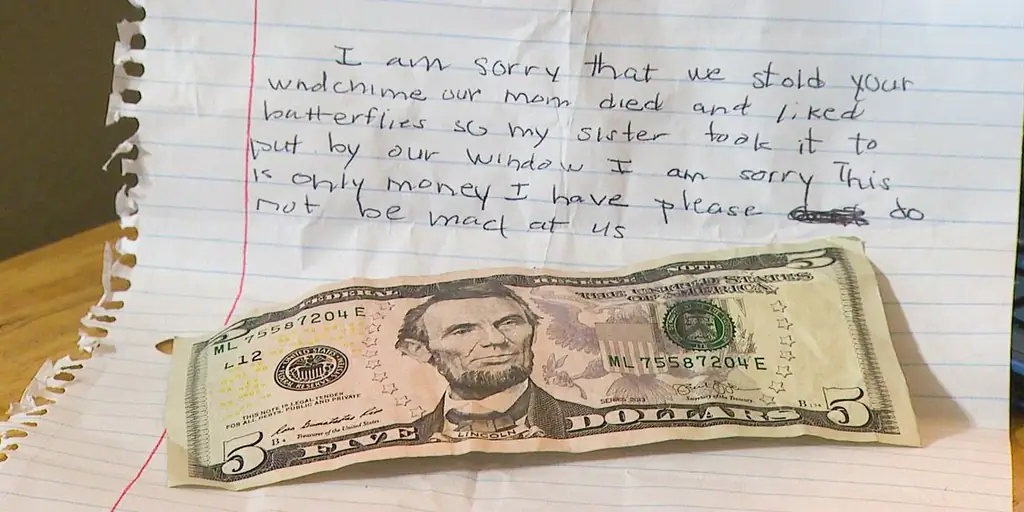 I am sorry that we stold your
wndchime our mom died and liked
butterflies so my sister took it to
put by our window I am sorry This
is only money I have please do
not be mad at us
FEDERAL RESERVE NOTE
THE UNITED STATES
OF AMERICA
ML 75587204 E
L12
ML 75587204 E
THIS NOTE IS LEGAL TENDER
FOR ALL DEBTS, PUBLIC AND PRIVATE
Treasurer of the United States
SERIES 2013
Secretary of the Treasury
5
FIVE
LINCOLN
DOLLARS
5